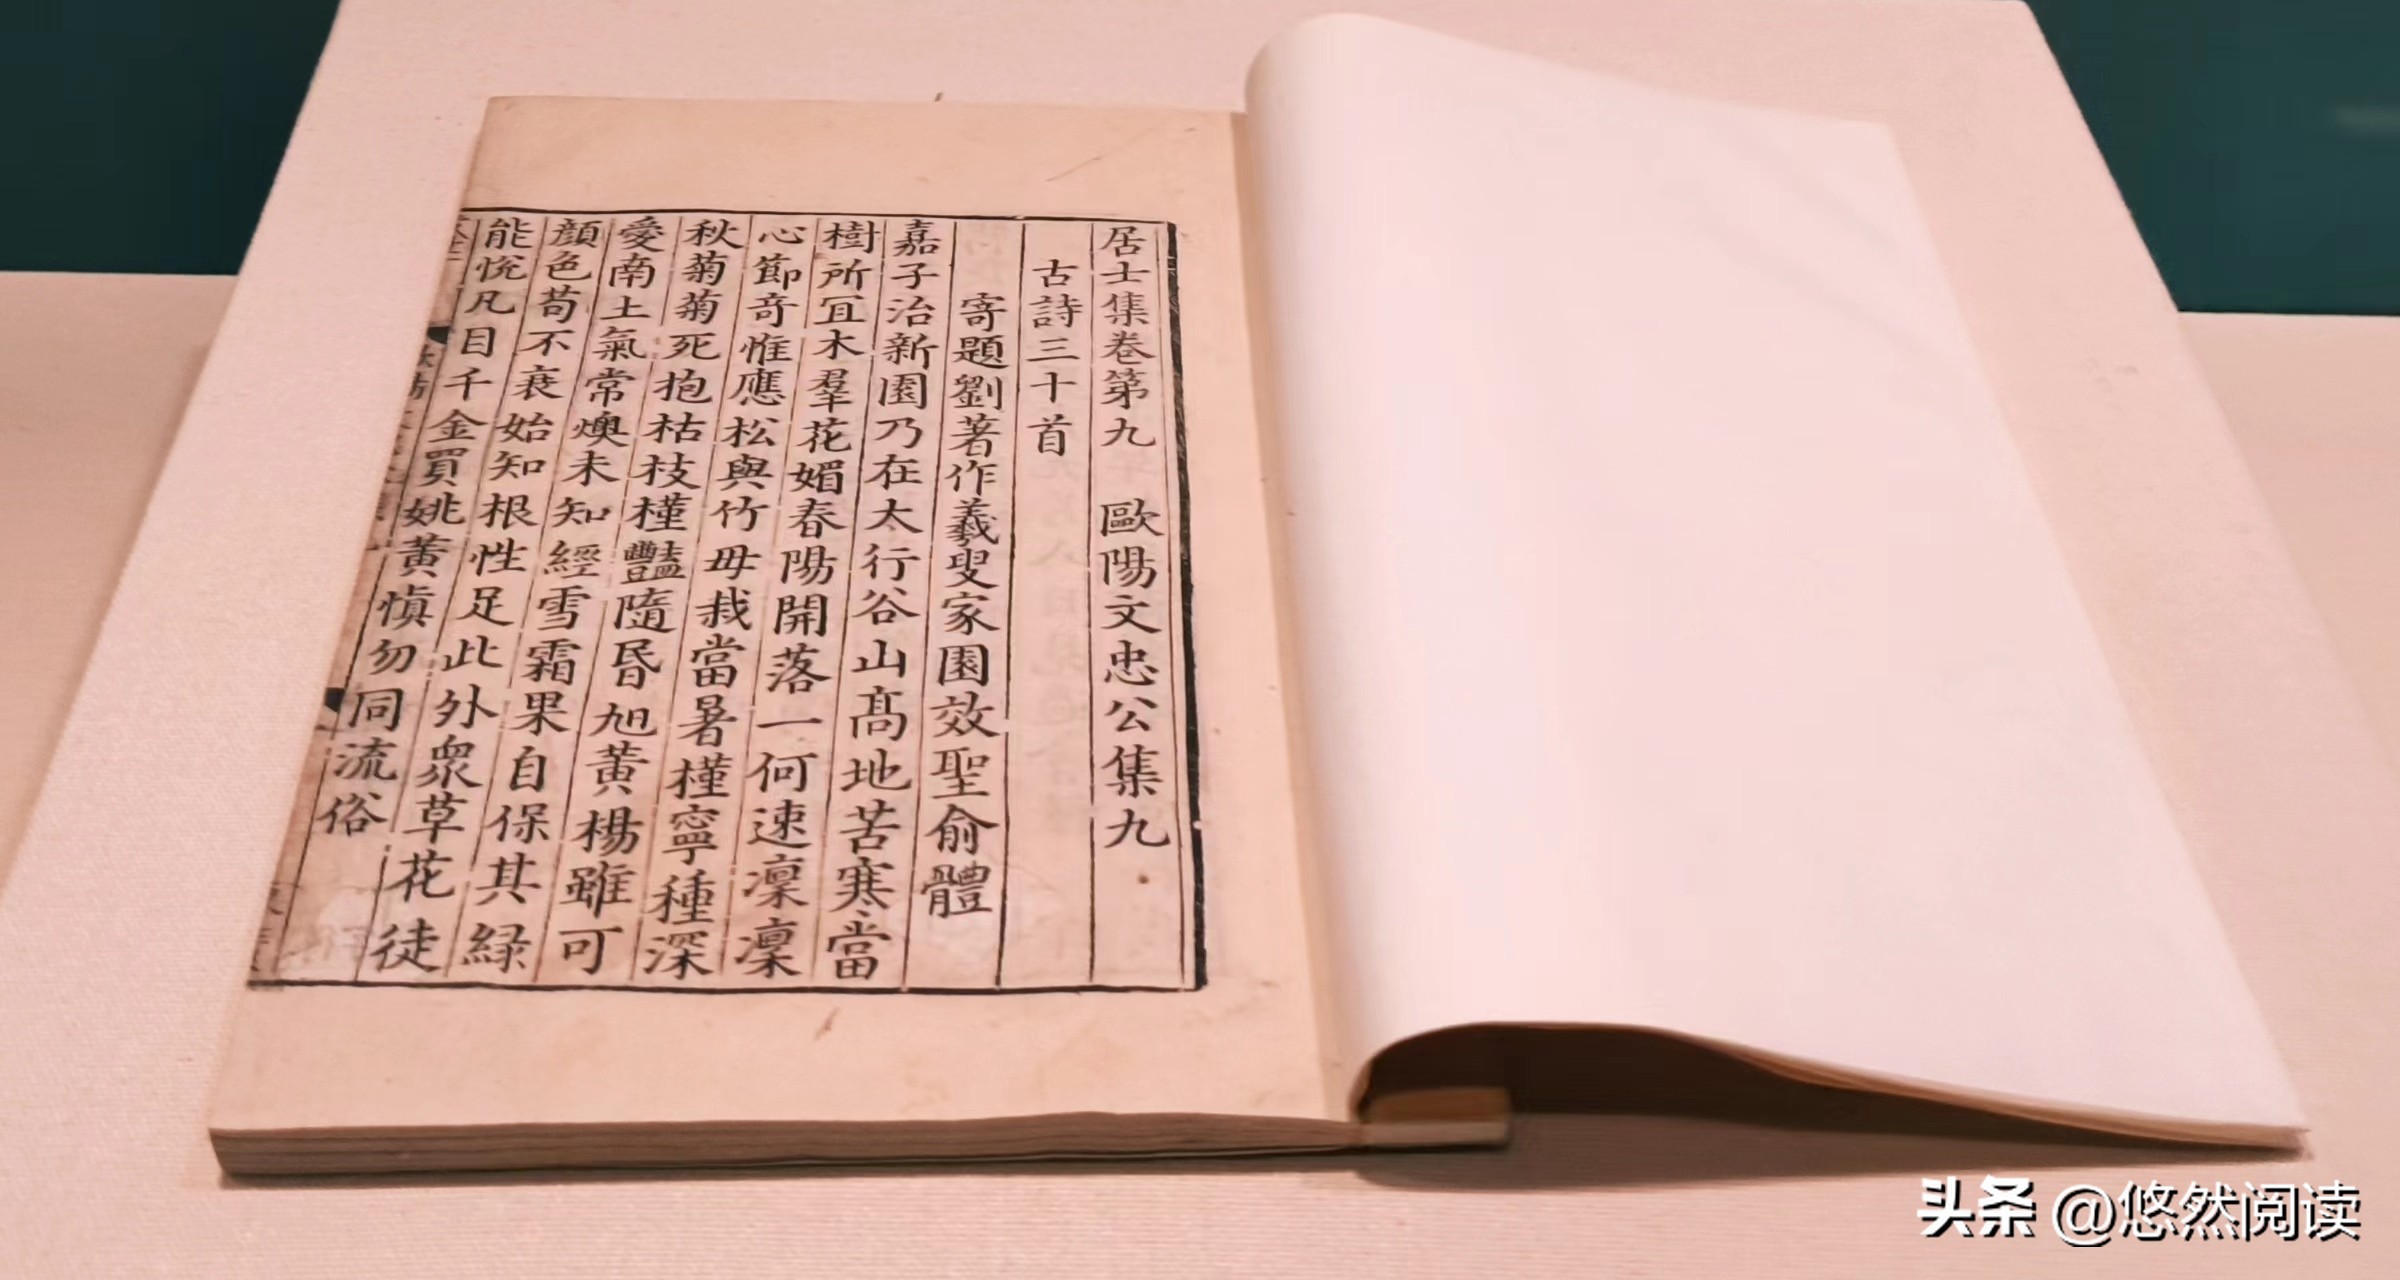 居士集卷第九　歐陽文忠公集九
古詩三十首
寄題劉著作羲叟家園效聖俞體
嘉子治新園乃在太行谷山髙地苦寒當
樹所冝木羣花媚春陽開落一何速凜凜
心節竒惟應松與竹毋栽當暑槿寧種深
秋菊菊死抱枯枝槿豔隨昏旭黄楊雖可
愛南土氣常燠未知經雪霜果自保其緑
顔色苟不衰始知根性足此外衆草花徒
能恱凡目千金買姚黄愼勿同流俗
头条 @悠然阅读